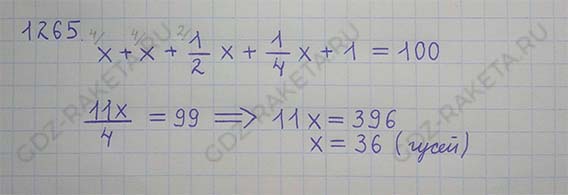 1265.
4/ 4/ 2/
x + x + 1/2 x + 1/4 x + 1 = 100
11x/4 = 99 ⟹ 11x = 396
x = 36 (гусей)
GDZ-RAKETA.RU
GDZ-RAKETA.RU
GDZ-RAKETA.RU
GDZ-RAKETA.RU